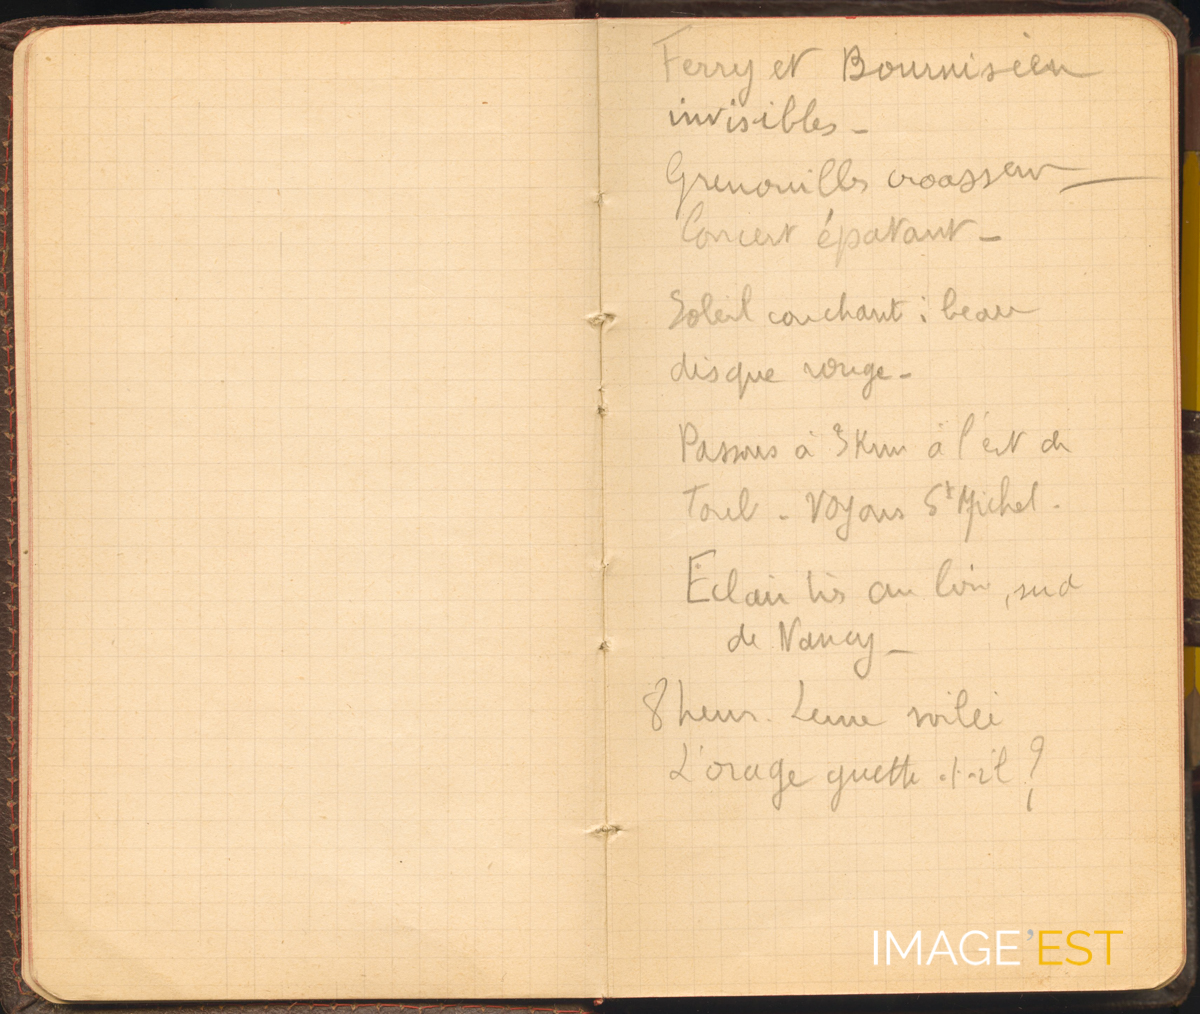 Ferry et Bournisien
invisibles -
Grenouilles croassent —
Concert épatant -
Soleil couchant : beau
disque rouge -
Passons à 3 Km à l'est de
Toul - Voyons St Michel.
Éclair très au loin, sud
de Nancy -
8 heur. Lune voilée
L'orage guette-t-il ?
IMAGE'EST